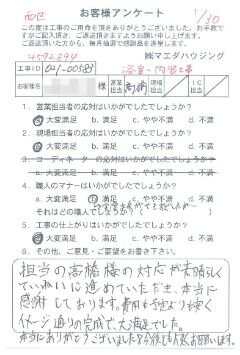 お客様アンケート
西区
1/30
この度は工事のご用命を頂きありがとうございました。お手数で
すがご記入頂き、ご返送頂きますようお願い申し上げます。
ご返送頂いた方から、毎月抽選で感謝品を進呈します。
4592894
㈱マエダハウジング
工事ID 021-00583
浴室・内装工事
お客様名 様 営業担当 高橋 現場担当 IC担当
1. 営業担当者の応対はいかがでしたでしょうか?
a. 大変満足 b. 満足 c. やや不満 d. 不満
2. 現場担当者の応対はいかがでしたでしょうか?
a. 大変満足 b. 満足 c. やや不満 d. 不満
3. コーディネーターの応対はいかがでしたでしょうか?
a. 大変満足 b. 満足 c. やや不満 d. 不満
4. 職人のマナーはいかがでしたでしょうか?
a. 大変満足 b. 満足 c. やや不満 d. 不満
それはどの職人でしたでしょうか?
5. 工事の仕上がりはいかがでしたでしょうか?
a. 大変満足 b. 満足 c. やや不満 d. 不満
6. その他、ご意見・ご要望をお書き下さい。
担当の高橋様の対応が素晴らしく
ていねいに進めていただき、本当に
感謝しております。費用も予定より
イメージ通りの完成で、大満足でした。
本当にありがとうございました今後とも お願います。